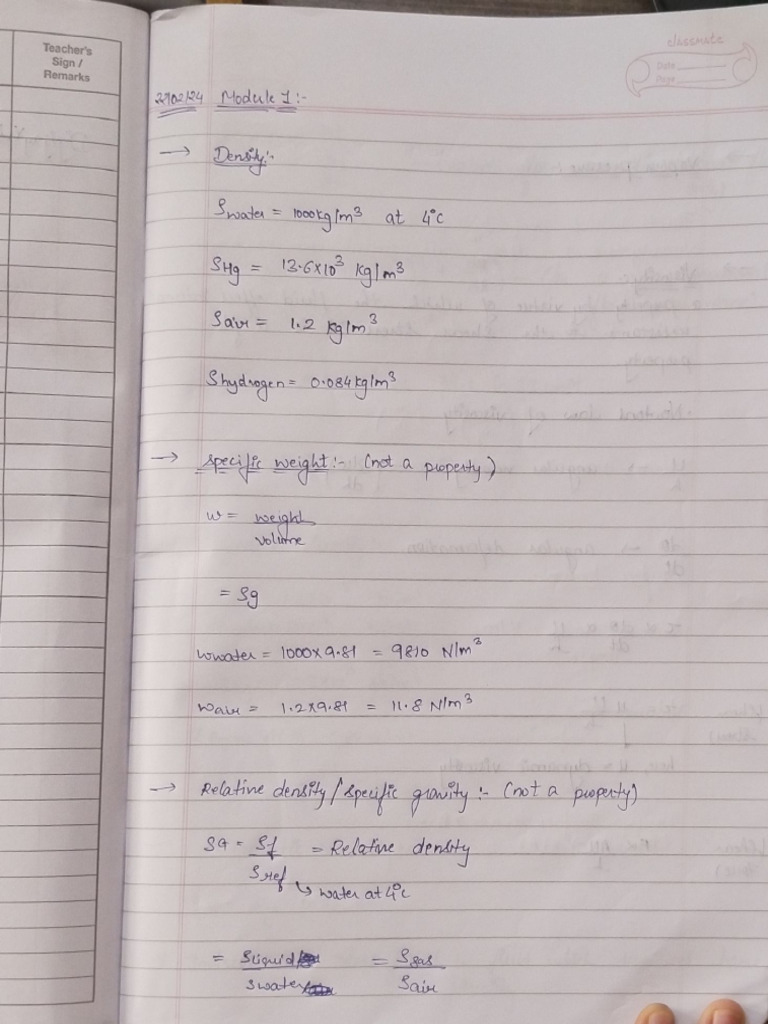 Teacher's
Sign /
Remarks
classmate
Date
Page
22/02/24 Module 1:-
→ Density:-
ρwater = 1000kg/m³ at 4°C
ρHg = 13.6×10³ kg/m³
ρair = 1.2 kg/m³
ρhydrogen = 0.084kg/m³
→ specific weight:- (not a property)
w = weight
volume
= ρg
wwater = 1000×9.81 = 9810 N/m³
wair = 1.2×9.81 = 11.8 N/m³
→ Relative density/specific gravity:- (not a property)
SG = ρf = Relative density
ρref ↳ water at 4°C
= ρliquid = ρgas
ρwater ρair